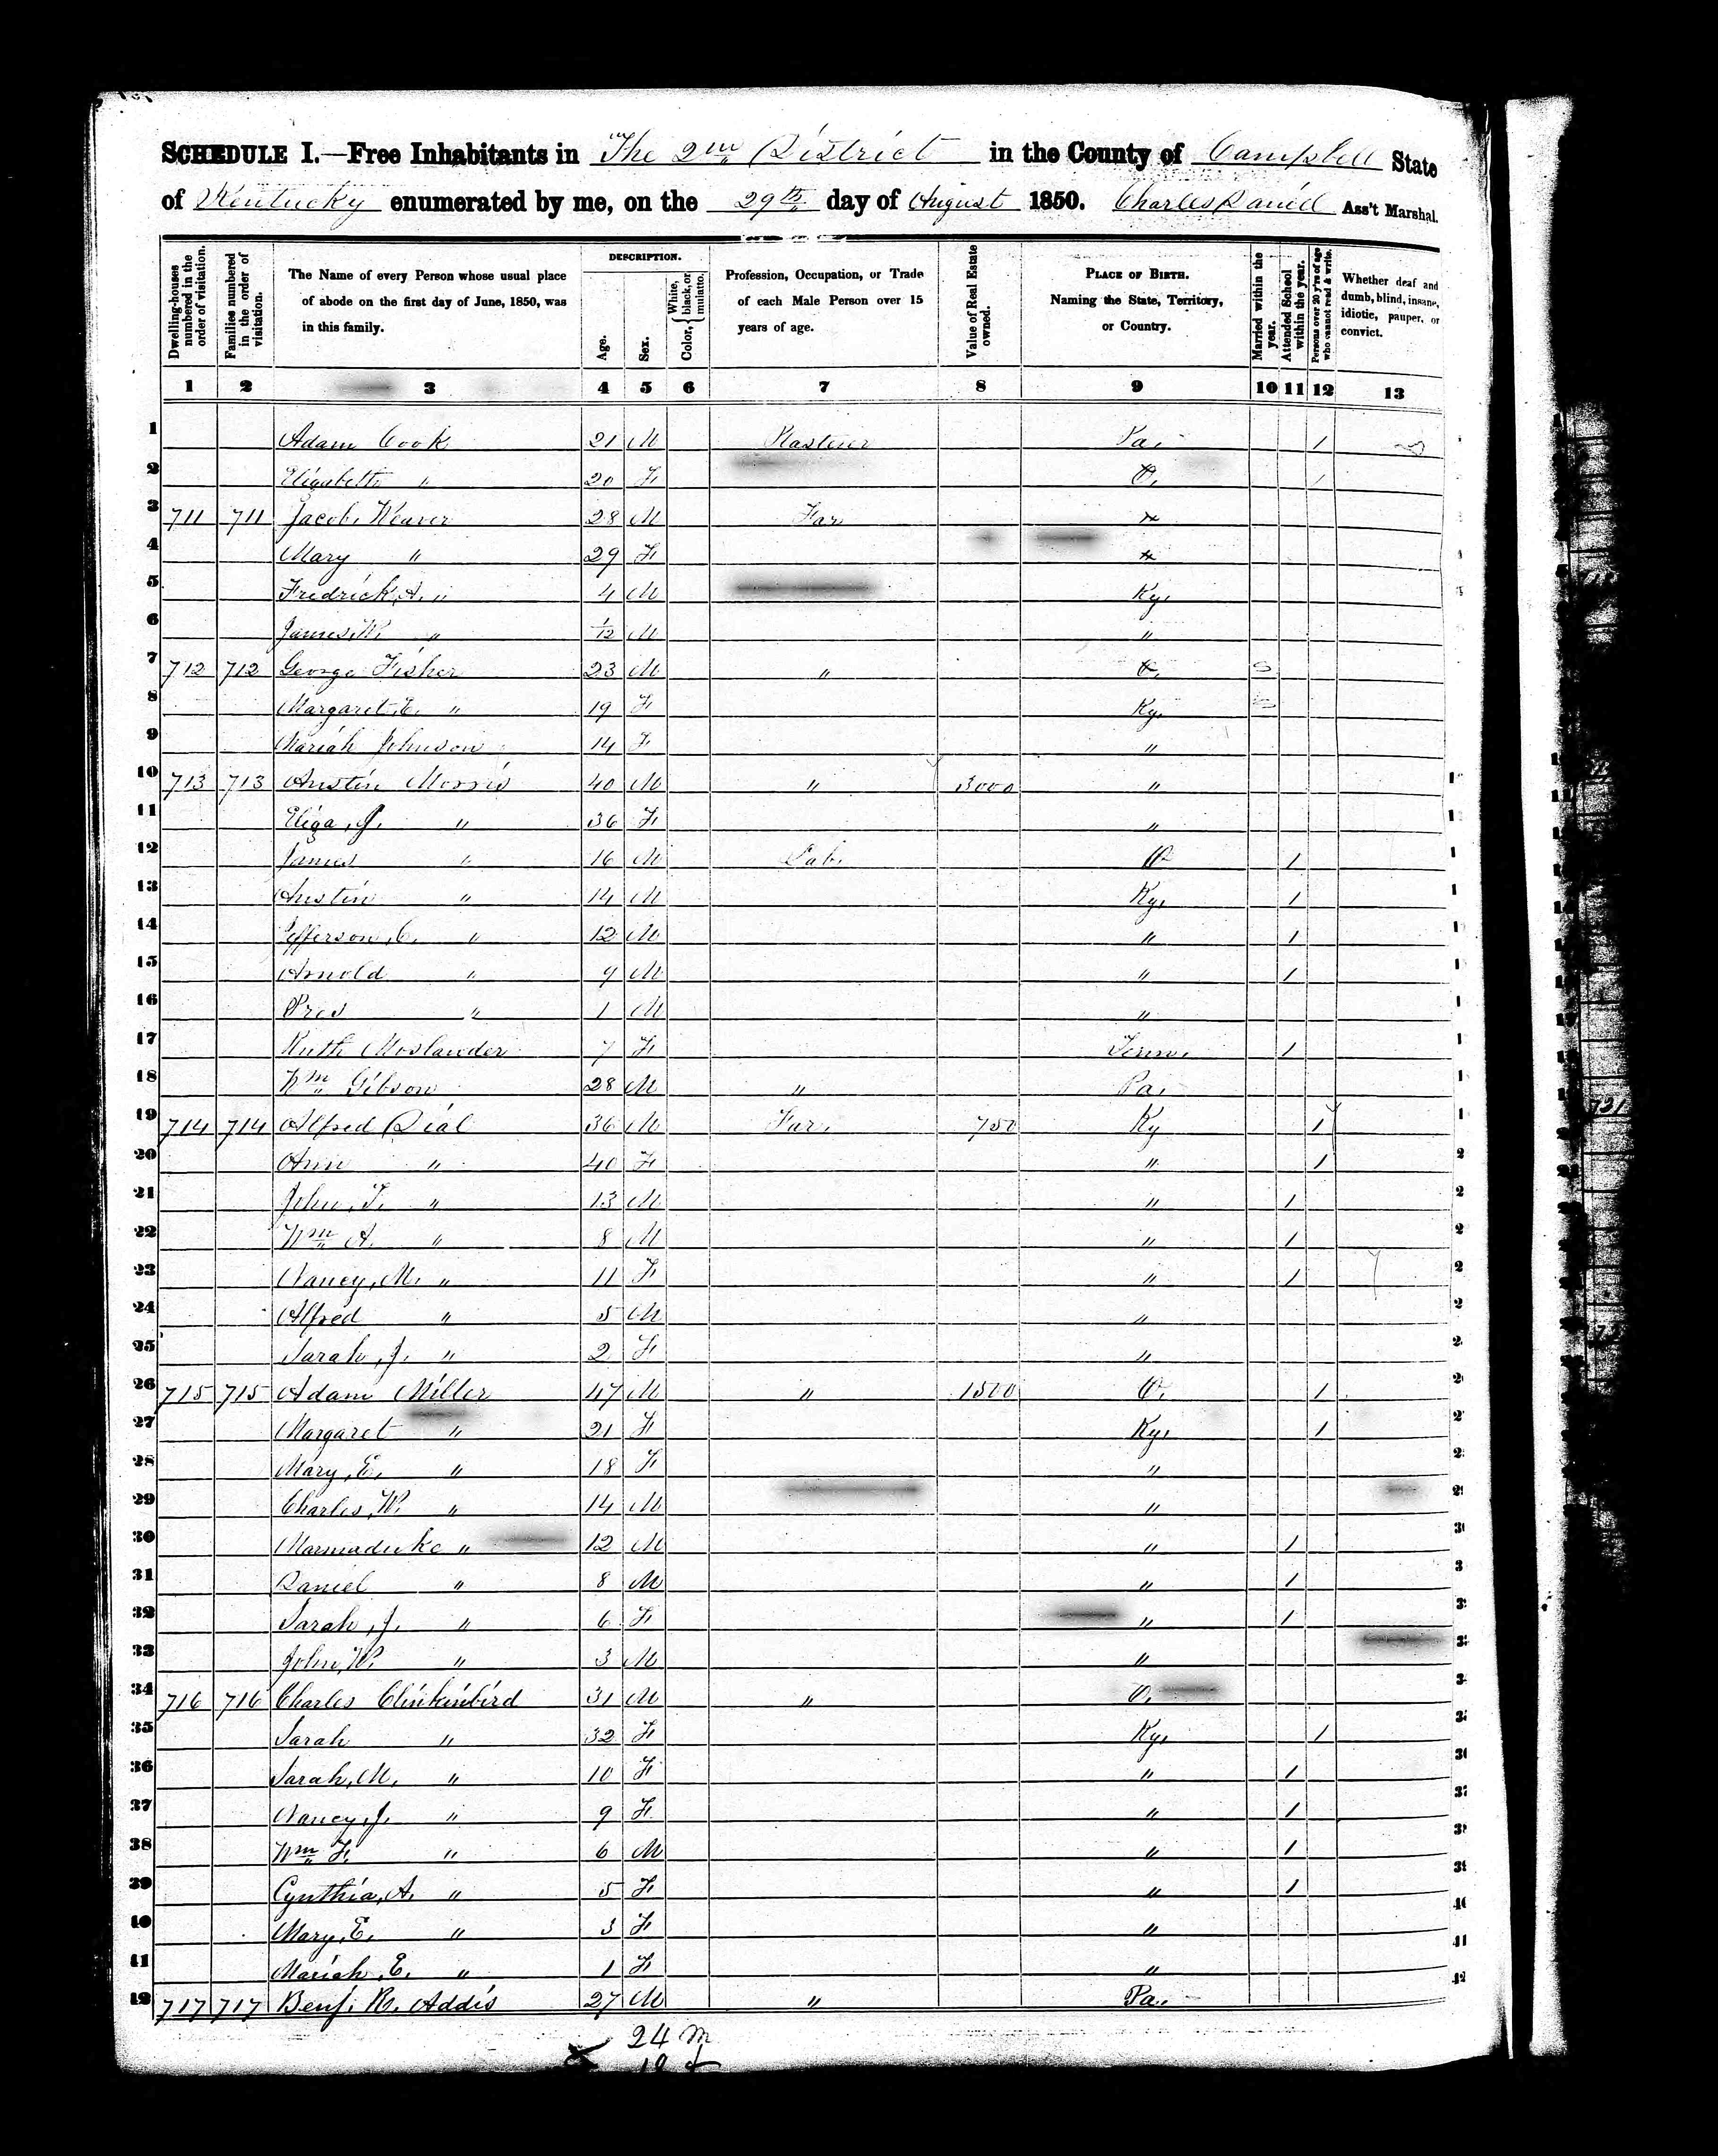 SCHEDULE I.—Free Inhabitants in The 2nd District in the County of Campbell State
of Kentucky enumerated by me, on the 29th day of August 1850. Charles Daniel Ass't Marshal.
Dwelling-houses numbered in the order of visitation.
Families numbered in the order of visitation.
The Name of every Person whose usual place of abode on the first day of June, 1850, was in this family.
DESCRIPTION.
Age.
Sex.
Color, { White, black, or mulatto.
Profession, Occupation, or Trade of each Male Person over 15 years of age.
Value of Real Estate owned.
PLACE OF BIRTH. Naming the State, Territory, or Country.
Married within the year.
Attended School within the year.
Persons over 20 y'rs of age who cannot read & write.
Whether deaf and dumb, blind, insane, idiotic, pauper, or convict.
1 2 3 4 5 6 7 8 9 10 11 12 13
1 Adam Cook 21 M Plasterer Pa. 1
2 Elizabeth " 20 F O. 1
3 711 711 Jacob Weaver 28 M Far
4 Mary " 29 F
5 Fredrick, A. " 4 M Ky.
6 James, W. " 1/12 M "
7 712 712 George Fisher 23 M " O.
8 Margaret, E. " 19 F Ky.
9 Mariah Johnson 14 F "
10 713 713 Austin Morris 40 M " 3000 "
11 Eliza, J. " 36 F "
12 James " 16 M Lab. O 1
13 Austin " 14 M Ky. 1
14 Jefferson, C. " 12 M " 1
15 Arnold " 9 M " 1
16 Pres " 1 M "
17 Ruth Moslander 7 F Tenn. 1
18 Wm Gibson 28 M " Pa.
19 714 714 Alfred Dial 36 M Far. 750 Ky 1
20 Ann " 40 F " 1
21 John, T. " 13 M " 1
22 Wm A. " 8 M " 1
23 Nancy, M. " 11 F " 1
24 Alfred " 5 M "
25 Sarah, J. " 2 F "
26 715 715 Adam Miller 47 M " 1500 O. 1
27 Margaret " 21 F Ky. 1
28 Mary, E. " 18 F "
29 Charles, W. " 14 M "
30 Marmaduke " 12 M " 1
31 Daniel " 8 M " 1
32 Sarah, J. " 6 F " 1
33 John, W. " 3 M "
34 716 716 Charles Clinkinbird 31 M " O.
35 Sarah " 32 F Ky. 1
36 Sarah, M. " 10 F " 1
37 Nancy, J. " 9 F " 1
38 Wm F. " 6 M " 1
39 Cynthia, A. " 5 F " 1
40 Mary, E. " 3 F "
41 Mariah, E. " 1 F "
42 717 717 Benj. R. Addis 27 M " Pa.
24 m
18 f